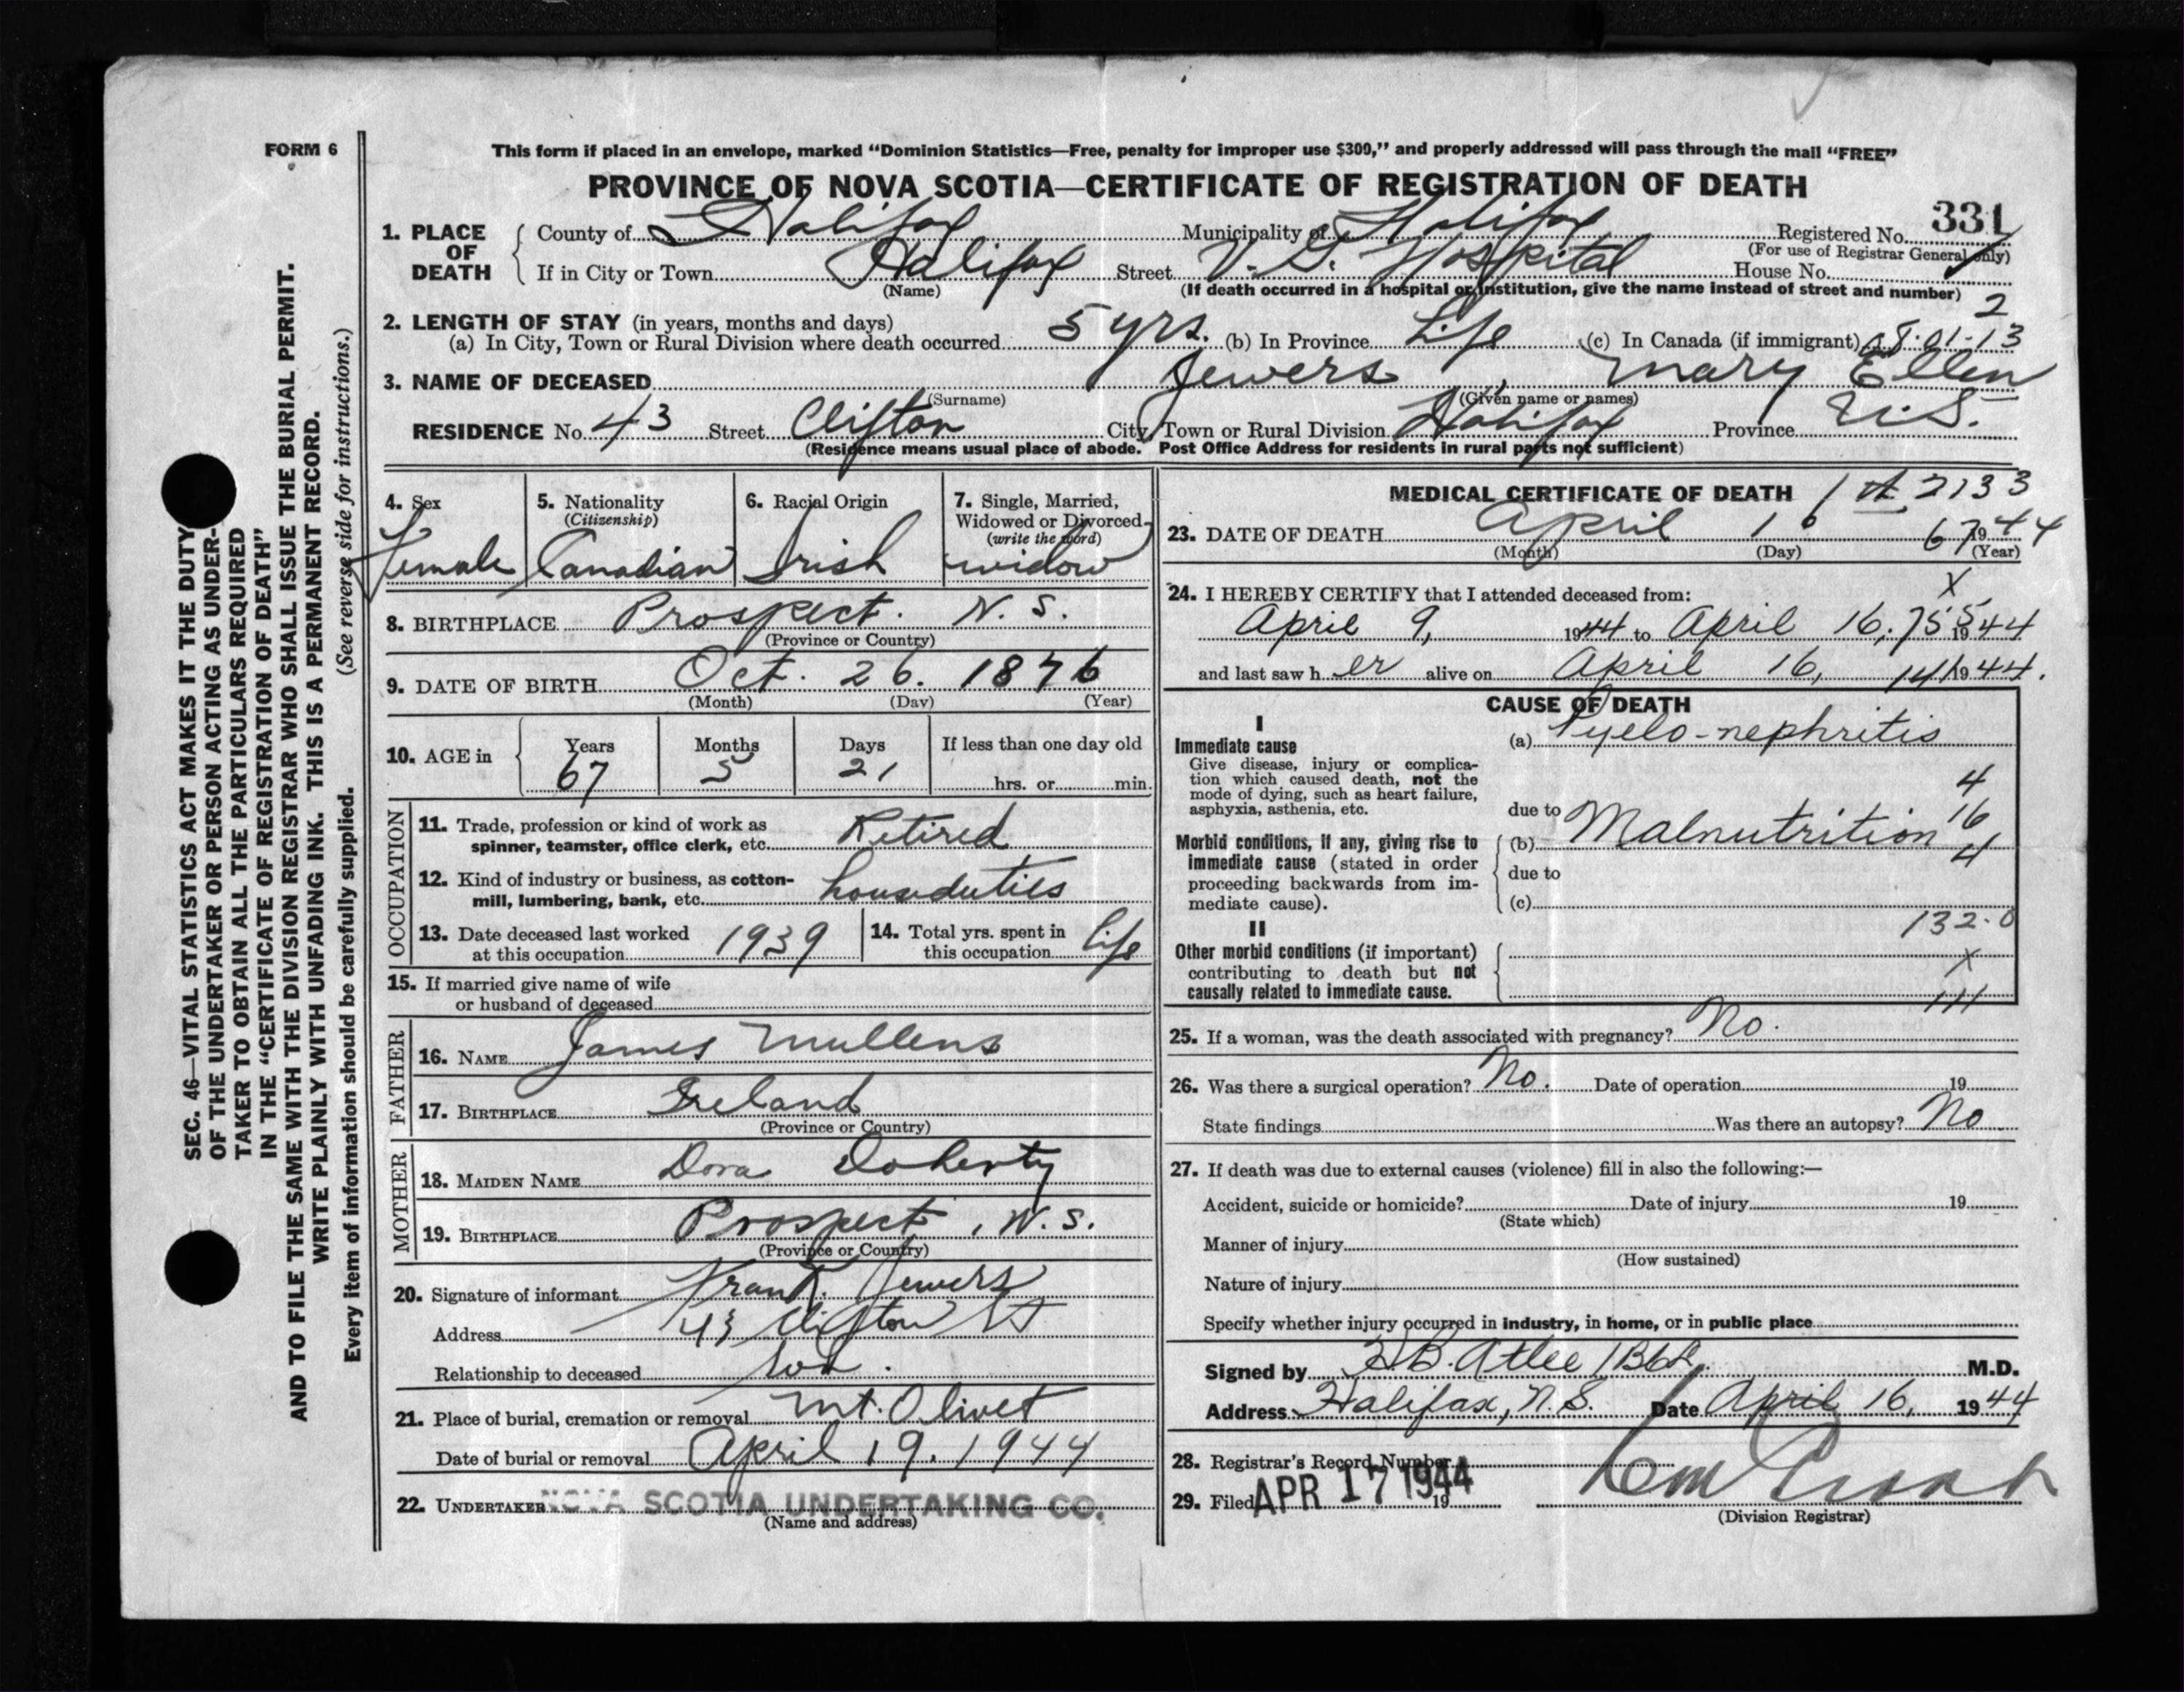 FORM 6
This form if placed in an envelope, marked “Dominion Statistics—Free, penalty for improper use $300,” and properly addressed will pass through the mail “FREE”
PROVINCE OF NOVA SCOTIA—CERTIFICATE OF REGISTRATION OF DEATH
331
1. PLACE OF DEATH County of Halifax Municipality of Halifax Registered No.
(For use of Registrar General only)
If in City or Town Halifax Street V. G. Hospital House No.
(Name) (If death occurred in a hospital or institution, give the name instead of street and number)
2
2. LENGTH OF STAY (in years, months and days)
(a) In City, Town or Rural Division where death occurred 5 yrs. (b) In Province Life (c) In Canada (if immigrant)
3. NAME OF DECEASED Jewers, Mary Ellen
(Surname) (Given name or names)
RESIDENCE No. 43 Street Clifton City, Town or Rural Division Halifax Province N.S.
(Residence means usual place of abode. Post Office Address for residents in rural parts not sufficient)
4. Sex
Female
5. Nationality
(Citizenship)
Canadian
6. Racial Origin
Irish
7. Single, Married,
Widowed or Divorced
(write the word)
widow
8. BIRTHPLACE Prospect. N. S.
(Province or Country)
9. DATE OF BIRTH Oct. 26. 1876
(Month) (Day) (Year)
10. AGE in Years Months Days If less than one day old
67 5 21 hrs. or min.
OCCUPATION
11. Trade, profession or kind of work as
spinner, teamster, office clerk, etc. Retired
12. Kind of industry or business, as cotton-
mill, lumbering, bank, etc. houseduties
13. Date deceased last worked
at this occupation 1939
14. Total yrs. spent in
this occupation life
15. If married give name of wife
or husband of deceased
FATHER
16. NAME James Mullens
17. BIRTHPLACE Ireland
(Province or Country)
MOTHER
18. MAIDEN NAME Dora Doherty
19. BIRTHPLACE Prospect, N.S.
(Province or Country)
20. Signature of informant Frank Jewers
Address 43 Clifton St
Relationship to deceased son.
21. Place of burial, cremation or removal Mt. Olivet
Date of burial or removal April 19. 1944
22. UNDERTAKER NOVA SCOTIA UNDERTAKING CO.
(Name and address)
MEDICAL CERTIFICATE OF DEATH
2133
23. DATE OF DEATH April 1 1944
(Month) (Day) (Year)
67
24. I HEREBY CERTIFY that I attended deceased from:
X
April 9, 1944 to April 16, 1944
and last saw her alive on April 16, 1944.
CAUSE OF DEATH
I
Immediate cause
Give disease, injury or complica-
tion which caused death, not the
mode of dying, such as heart failure,
asphyxia, asthenia, etc.
(a) Pyelo-nephritis
4
due to
16
Morbid conditions, if any, giving rise to
immediate cause (stated in order
proceeding backwards from im-
mediate cause).
(b) Malnutrition
4
due to
(c)
132-0
II
Other morbid conditions (if important)
contributing to death but not
causally related to immediate cause.
X
111
25. If a woman, was the death associated with pregnancy? No.
26. Was there a surgical operation? No. Date of operation 19
State findings Was there an autopsy? No
27. If death was due to external causes (violence) fill in also the following:—
Accident, suicide or homicide? Date of injury 19
(State which)
Manner of injury
(How sustained)
Nature of injury
Specify whether injury occurred in industry, in home, or in public place
Signed by H.B. Atlee M.D.
Address Halifax, N.S. Date April 16, 1944
28. Registrar’s Record Number
29. Filed APR 17 1944 19
(Division Registrar)
SEC. 46—VITAL STATISTICS ACT MAKES IT THE DUTY
OF THE UNDERTAKER OR PERSON ACTING AS UNDER-
TAKER TO OBTAIN ALL THE PARTICULARS REQUIRED
IN THE “CERTIFICATE OF REGISTRATION OF DEATH”
AND TO FILE THE SAME WITH THE DIVISION REGISTRAR WHO SHALL ISSUE THE BURIAL PERMIT.
WRITE PLAINLY WITH UNFADING INK. THIS IS A PERMANENT RECORD.
Every item of information should be carefully supplied. (See reverse side for instructions.)